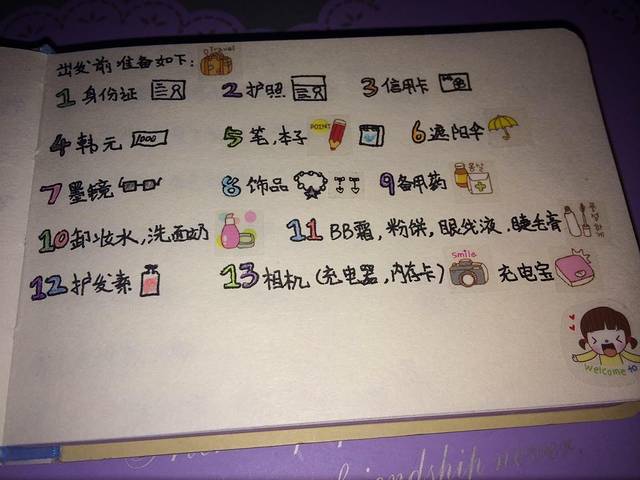 出发前准备如下: Travel
1 身份证 2 护照 3 信用卡
4 韩元 1000 5 笔,本子 POINT 6 遮阳伞
7 墨镜 8 饰品 9 备用药
10 卸妆水,洗面奶 11 BB霜,粉饼,眼线液,睫毛膏
12 护发素 13 相机(充电器,内存卡) smile 充电宝
welcome to
friendship never